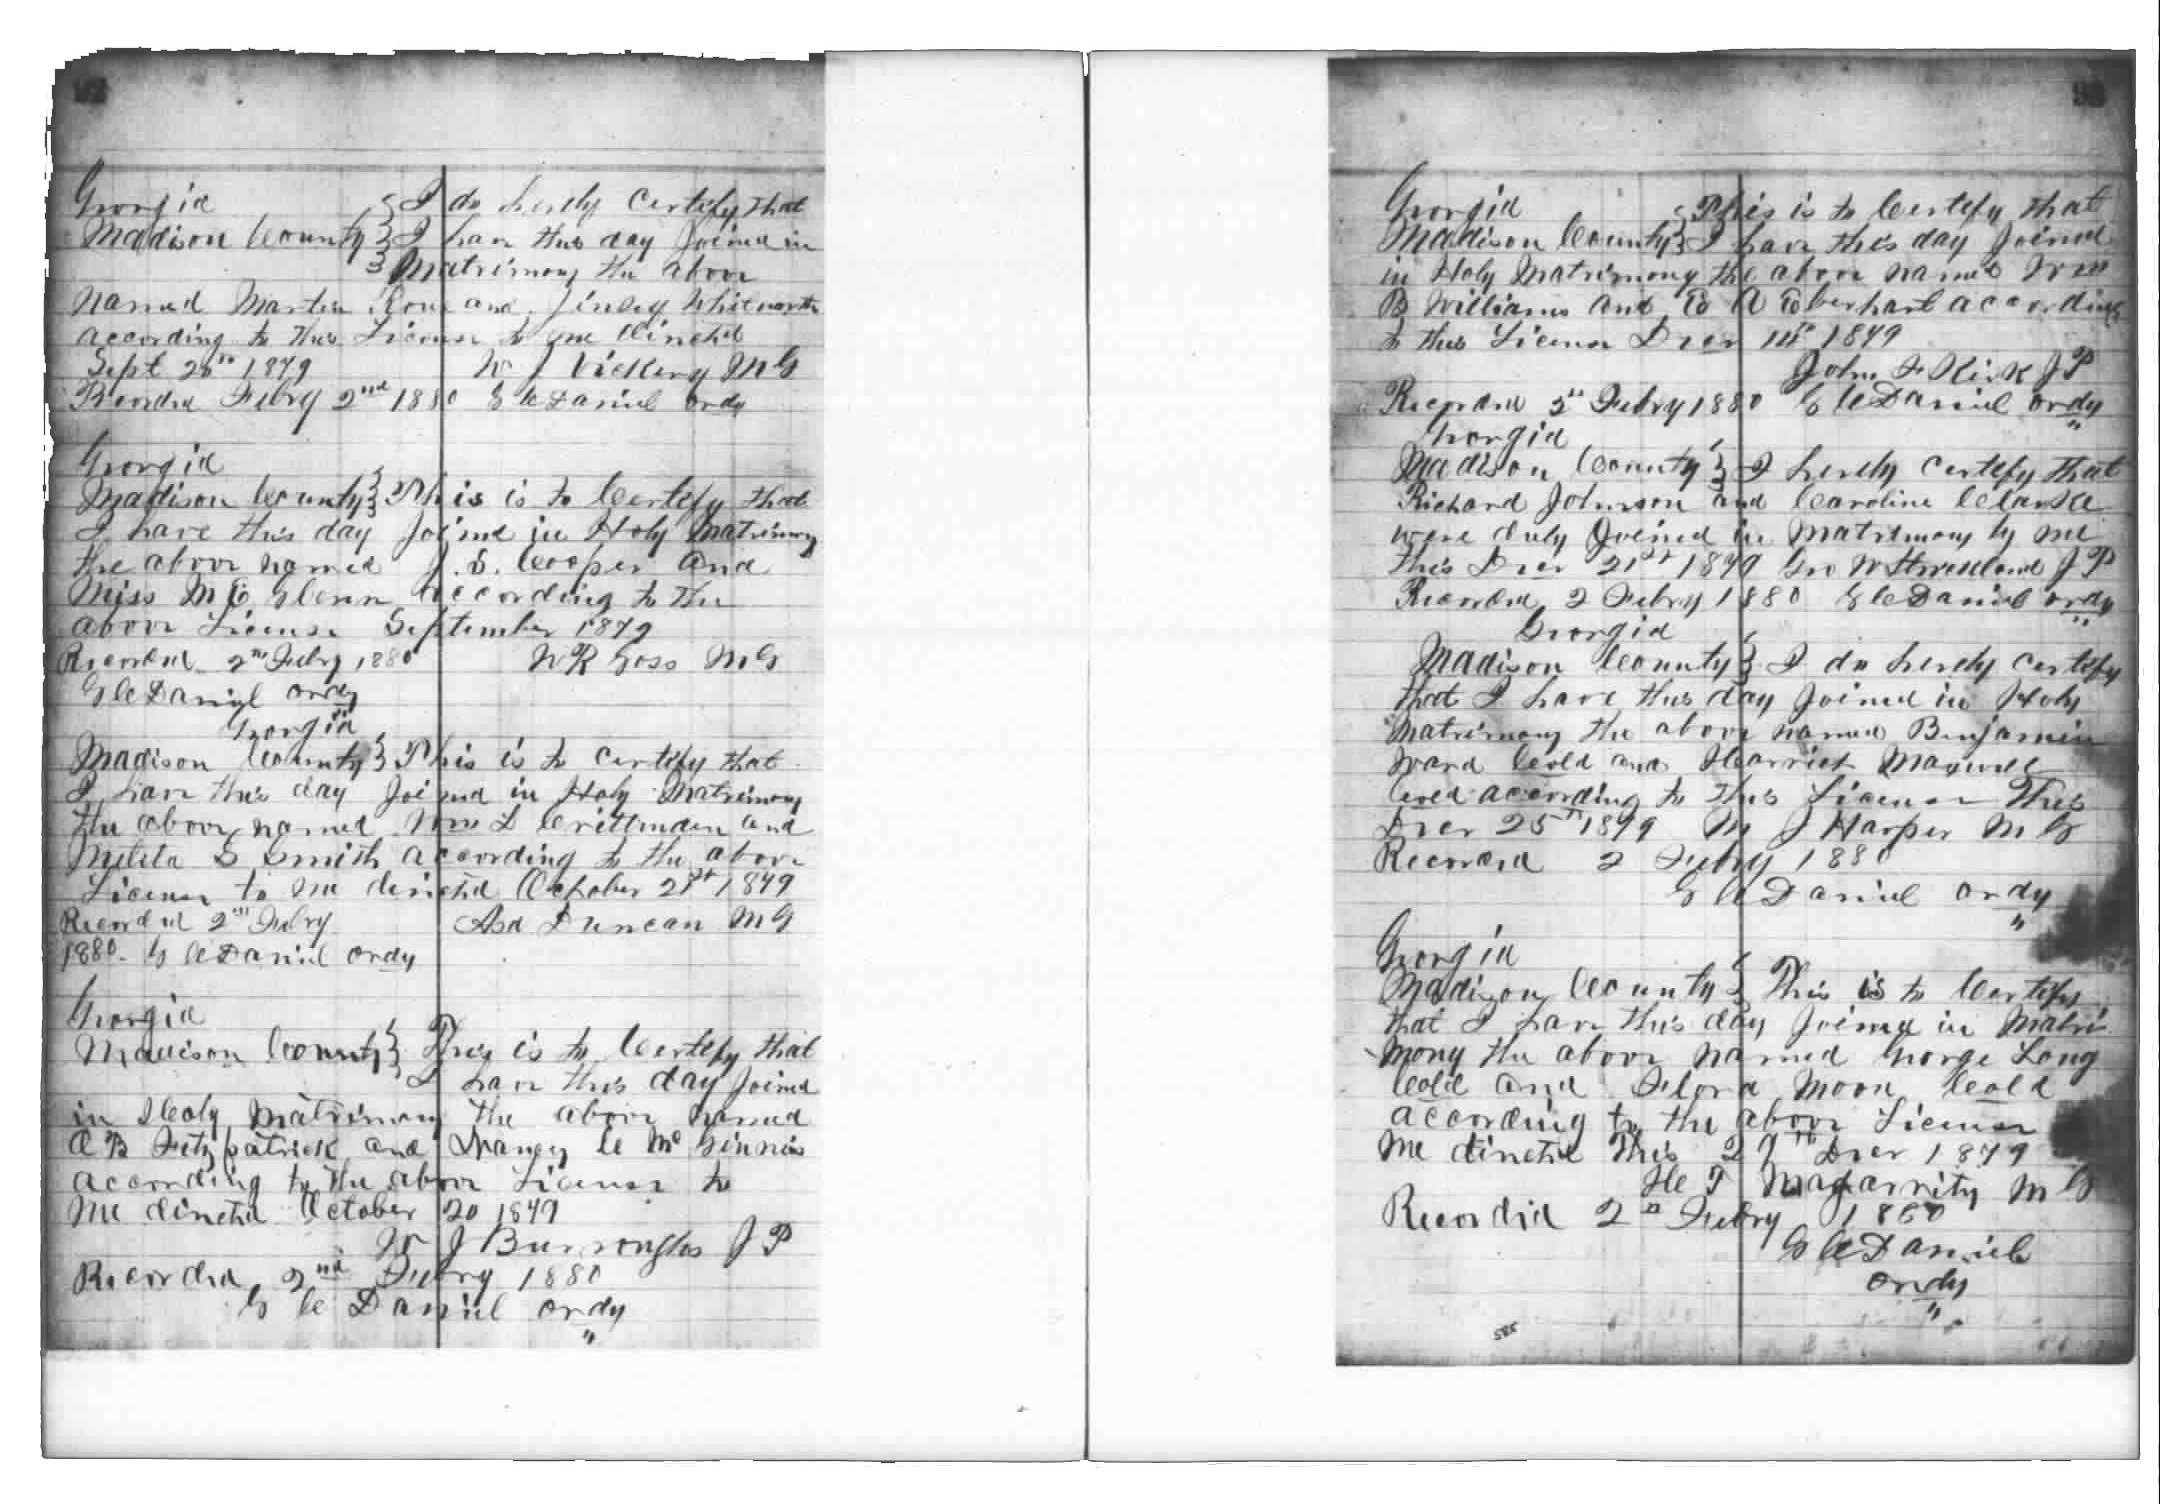 Georgia } I do herely certify that
Madison County } I have this day Joined in
Matrimony the above
named Martin and Jinsey Whitworth
according to this License to me directed
Sept 28th 1879 W J Vickery M G
Recorded Febry 2nd 1880 G C Daniel ordy
Georgia
Madison County } This is to Certify that
I have this day Joined in Holy Matrimony
the above named J. S. Cooper and
Miss M E Glenn according to the
above License September 1879
Recorded 2nd Febry 1880 W R Goss M G
G C Daniel ordy
Georgia
Madison County } This is to certify that
I have this day Joined in Holy Matrimony
the above named Wm L Crittenden and
S Smith according to the above
License to me directed October 21st 1879
Recorded 2nd Febry Asa Duncan M G
1880. G C Daniel ordy
Georgia
Madison County } This is to Certify that
I have this day Joined
in Holy Matrimony the above named
A B Fitzpatrick and Nancy C McGinnis
according to the above License to
me directed October 20 1879
W J Burroughs J P
Recorded 2nd Febry 1880
G C Daniel ordy
Georgia } This is to Certify that
Madison County } I have this day Joined
in Holy Matrimony the above named Wm
B Williams and E A Eberhart according
to this License Decr 1879
John F Kirk J P
Recorded 2nd Febry 1880 G C Daniel ordy
Georgia
Madison County } I herely certify that
Richard Johnson and Caroline Clarke
were duly Joined in Matrimony by me
this Decr 21st 1879 Geo W Strickland J P
Recorded 2 Febry 1880 G C Daniel ordy
Georgia
Madison County } I do herely certify
that I have this day Joined in Holy
Matrimony the above named Benjamin
Ward Cold and Harriet Maxwell
Cold according to this License This
Decr 25th 1879 M J Harper M G
Recorded 2 Febry 1880
G C Daniel ordy
Georgia
Madison County } This is to Certify
that I have this day Joined in Matri
mony the above named George Long
Cold and Flora Moon Cold
according to the above License
me directed This 27th Decr 1879
H T Magarrity M G
Recordid 2n Febry 1880
G C Daniel
ordy
585